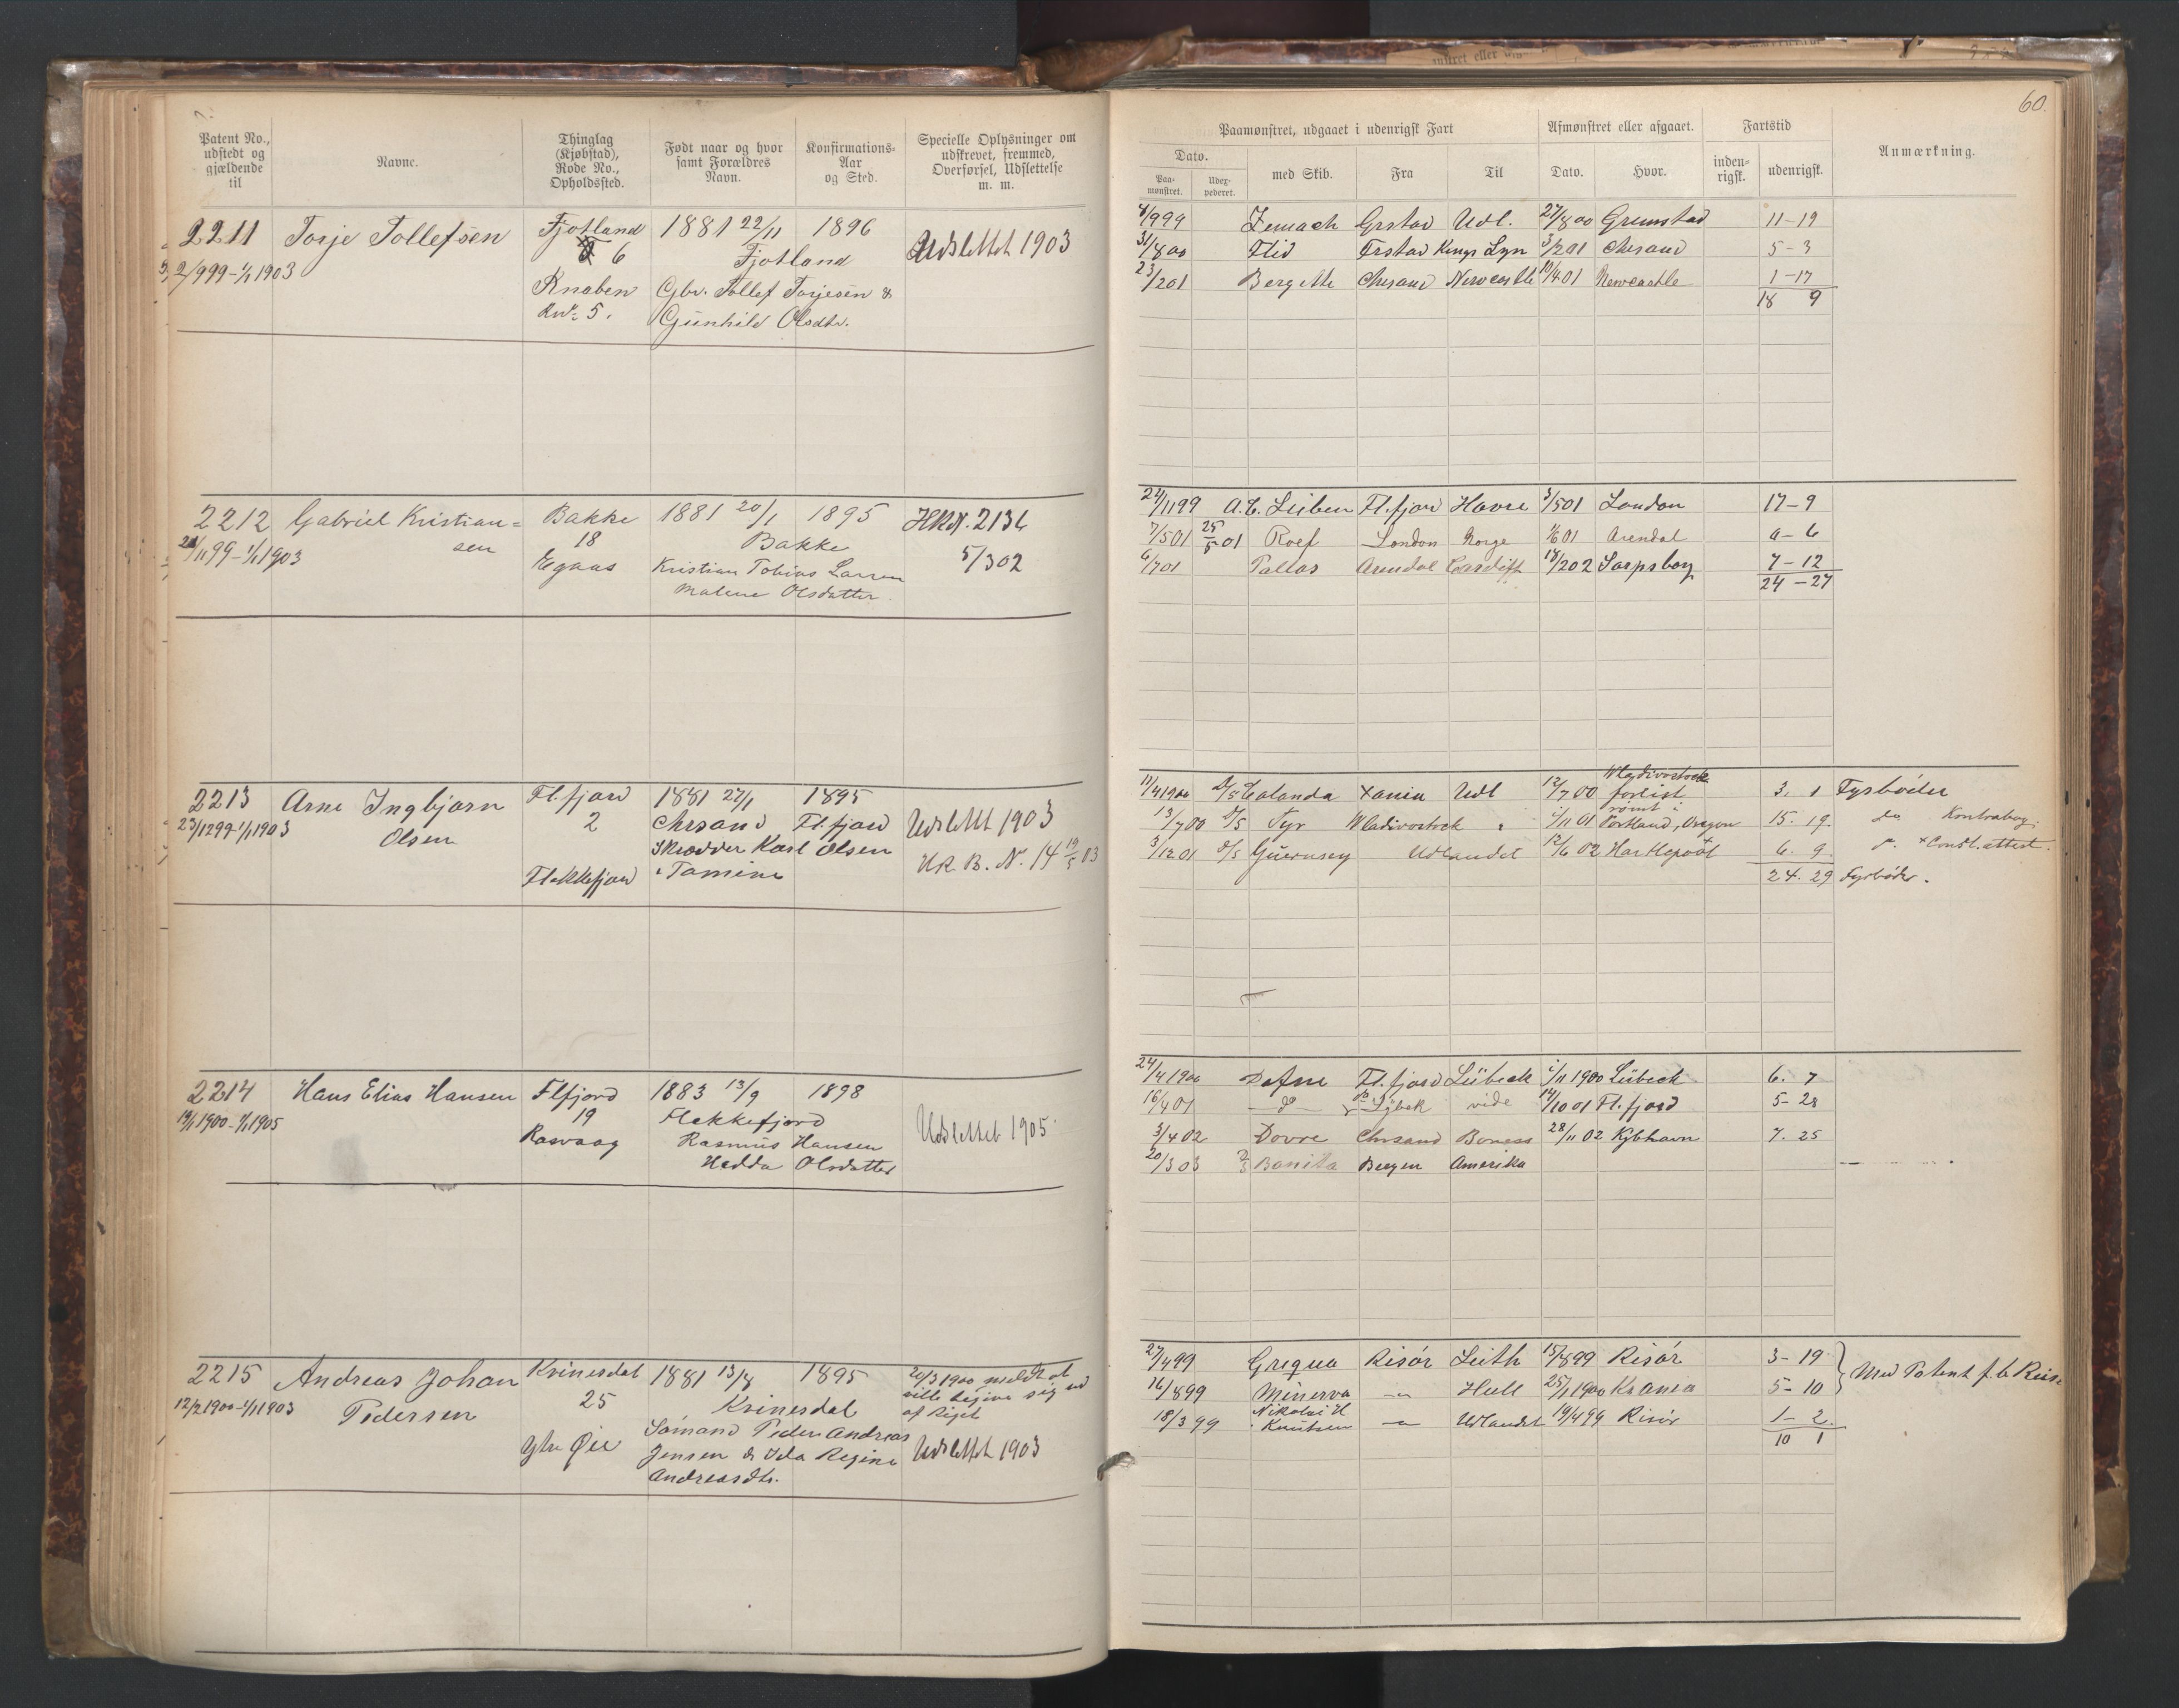 60.
Patent No., udstedt og gjældende til
Navne.
Thinglag (Kjøbstad), Rode No., Opholdssted.
Født naar og hvor samt Forældres Navn.
Konfirmations-Aar og Sted.
Specielle Oplysninger om udskrevet, fremmed, Overførsel, Udslettelse m. m.
Paamønstret, udgaaet i udenrigsk Fart
Afmønstret eller afgaaet.
Fartstid
Anmærkning.
Dato.
Paa-mønstret.
Udex-pederet.
med Skib.
Fra
Til
Dato.
Hvor.
inden-rigsk.
udenrigsk.
2211 Torje Tollefsen Fjotland 1881 22/11 1896 Udslettet 1903
2/999-1/1 1903 6 Fjotland
Knaben Gbr. Tollef Torjesen &
No. 5. Gunhild Olsdtr.
4/999 Zemach Grstad Udl. 27/800 Grimstad 11-19
31/800 Flid Grstad Kings Lyn 3/201 Chrsand 5-3
23/201 Bergitte Chrsand Newcastle 10/401 Newcastle 1-17
18 9
2212 Gabriel Kristian= Bakke 1881 20/1 1895 HRN. 2136
24/1199-1/1 1903 sen 18 Bakke 5/302
Egaas Kristian Tobias Larsen
Malene Olsdatter.
24/1199 A. C. Leiben Fl.fjord Havre 3/501 London 17-9
7/501 25/5 01 Roef London Norge 4/601 Arendal 0-6
6/701 Pallas Arendal Cardiff 18/202 Sarpsborg 7-12
24-27
2213 Arne Ingbjørn Fl.fjord 1881 27/1 1895 Udslettet 1903
23/1299-1/1 1903 Olsen 2 Chrsand Fl.fjord
Skrædder Karl Olsen HR B. N. 14 19/5 03
Flekkefjord & Tomine
17/4 1900 D/S Calanda Xania Udl 12/7 00 Wladivostock forlist 3. 1 Fyrbøder
13/7 00 D/S Tyr Wladivostock " 1/11 01 rømt i Portland, Oregon 15. 19. do Kontrabog.
3/12 01 D/S Guernsey Udlandet 12/6 02 Hartlepool 6. 9 + Consl. attest.
24. 29 Fyrbøder.
2214 Hans Elias Hansen Flfjord 1883 13/9 1898
19/1 1900-1/1 1905 19 Flekkefjord Udslettet 1905
Rasvaag Rasmus Hansen
Hedda Olsdatter
24/4 1900 Dafne Fl.fjord Lübeck 1/11 1900 Lübeck 6. 7
16/4 01 do Lybek vide 14/10 01 Fl.fjord 5-28
3/4 02 Dovre Chrsand Boness 28/11 02 Kjbhavn 7. 25
20/3 03 Bonita Bergen Amerika
2215 Andreas Johan Kvinesdal 1881 13/8 1895 20/3 1900 meldt at
12/2 1900-1/1 1903 Pedersen 25 Kvinesdal ville begive sig ud
af Riget
Ytre Øie Sømand Peder Andreas
Jensen & Ida Regine Udslettet 1903
Andreasdtr.
27/499 Griqua Risør Leith 15/899 Risør 3-19 Med Patent f. b. Reise
16/899 Minerva -"- Hull 25/1 1900 Krania 5-10
18/3 99 Nikolai H Knutsen -"- Udlandet 19/499 Risør 1-2.
10 1